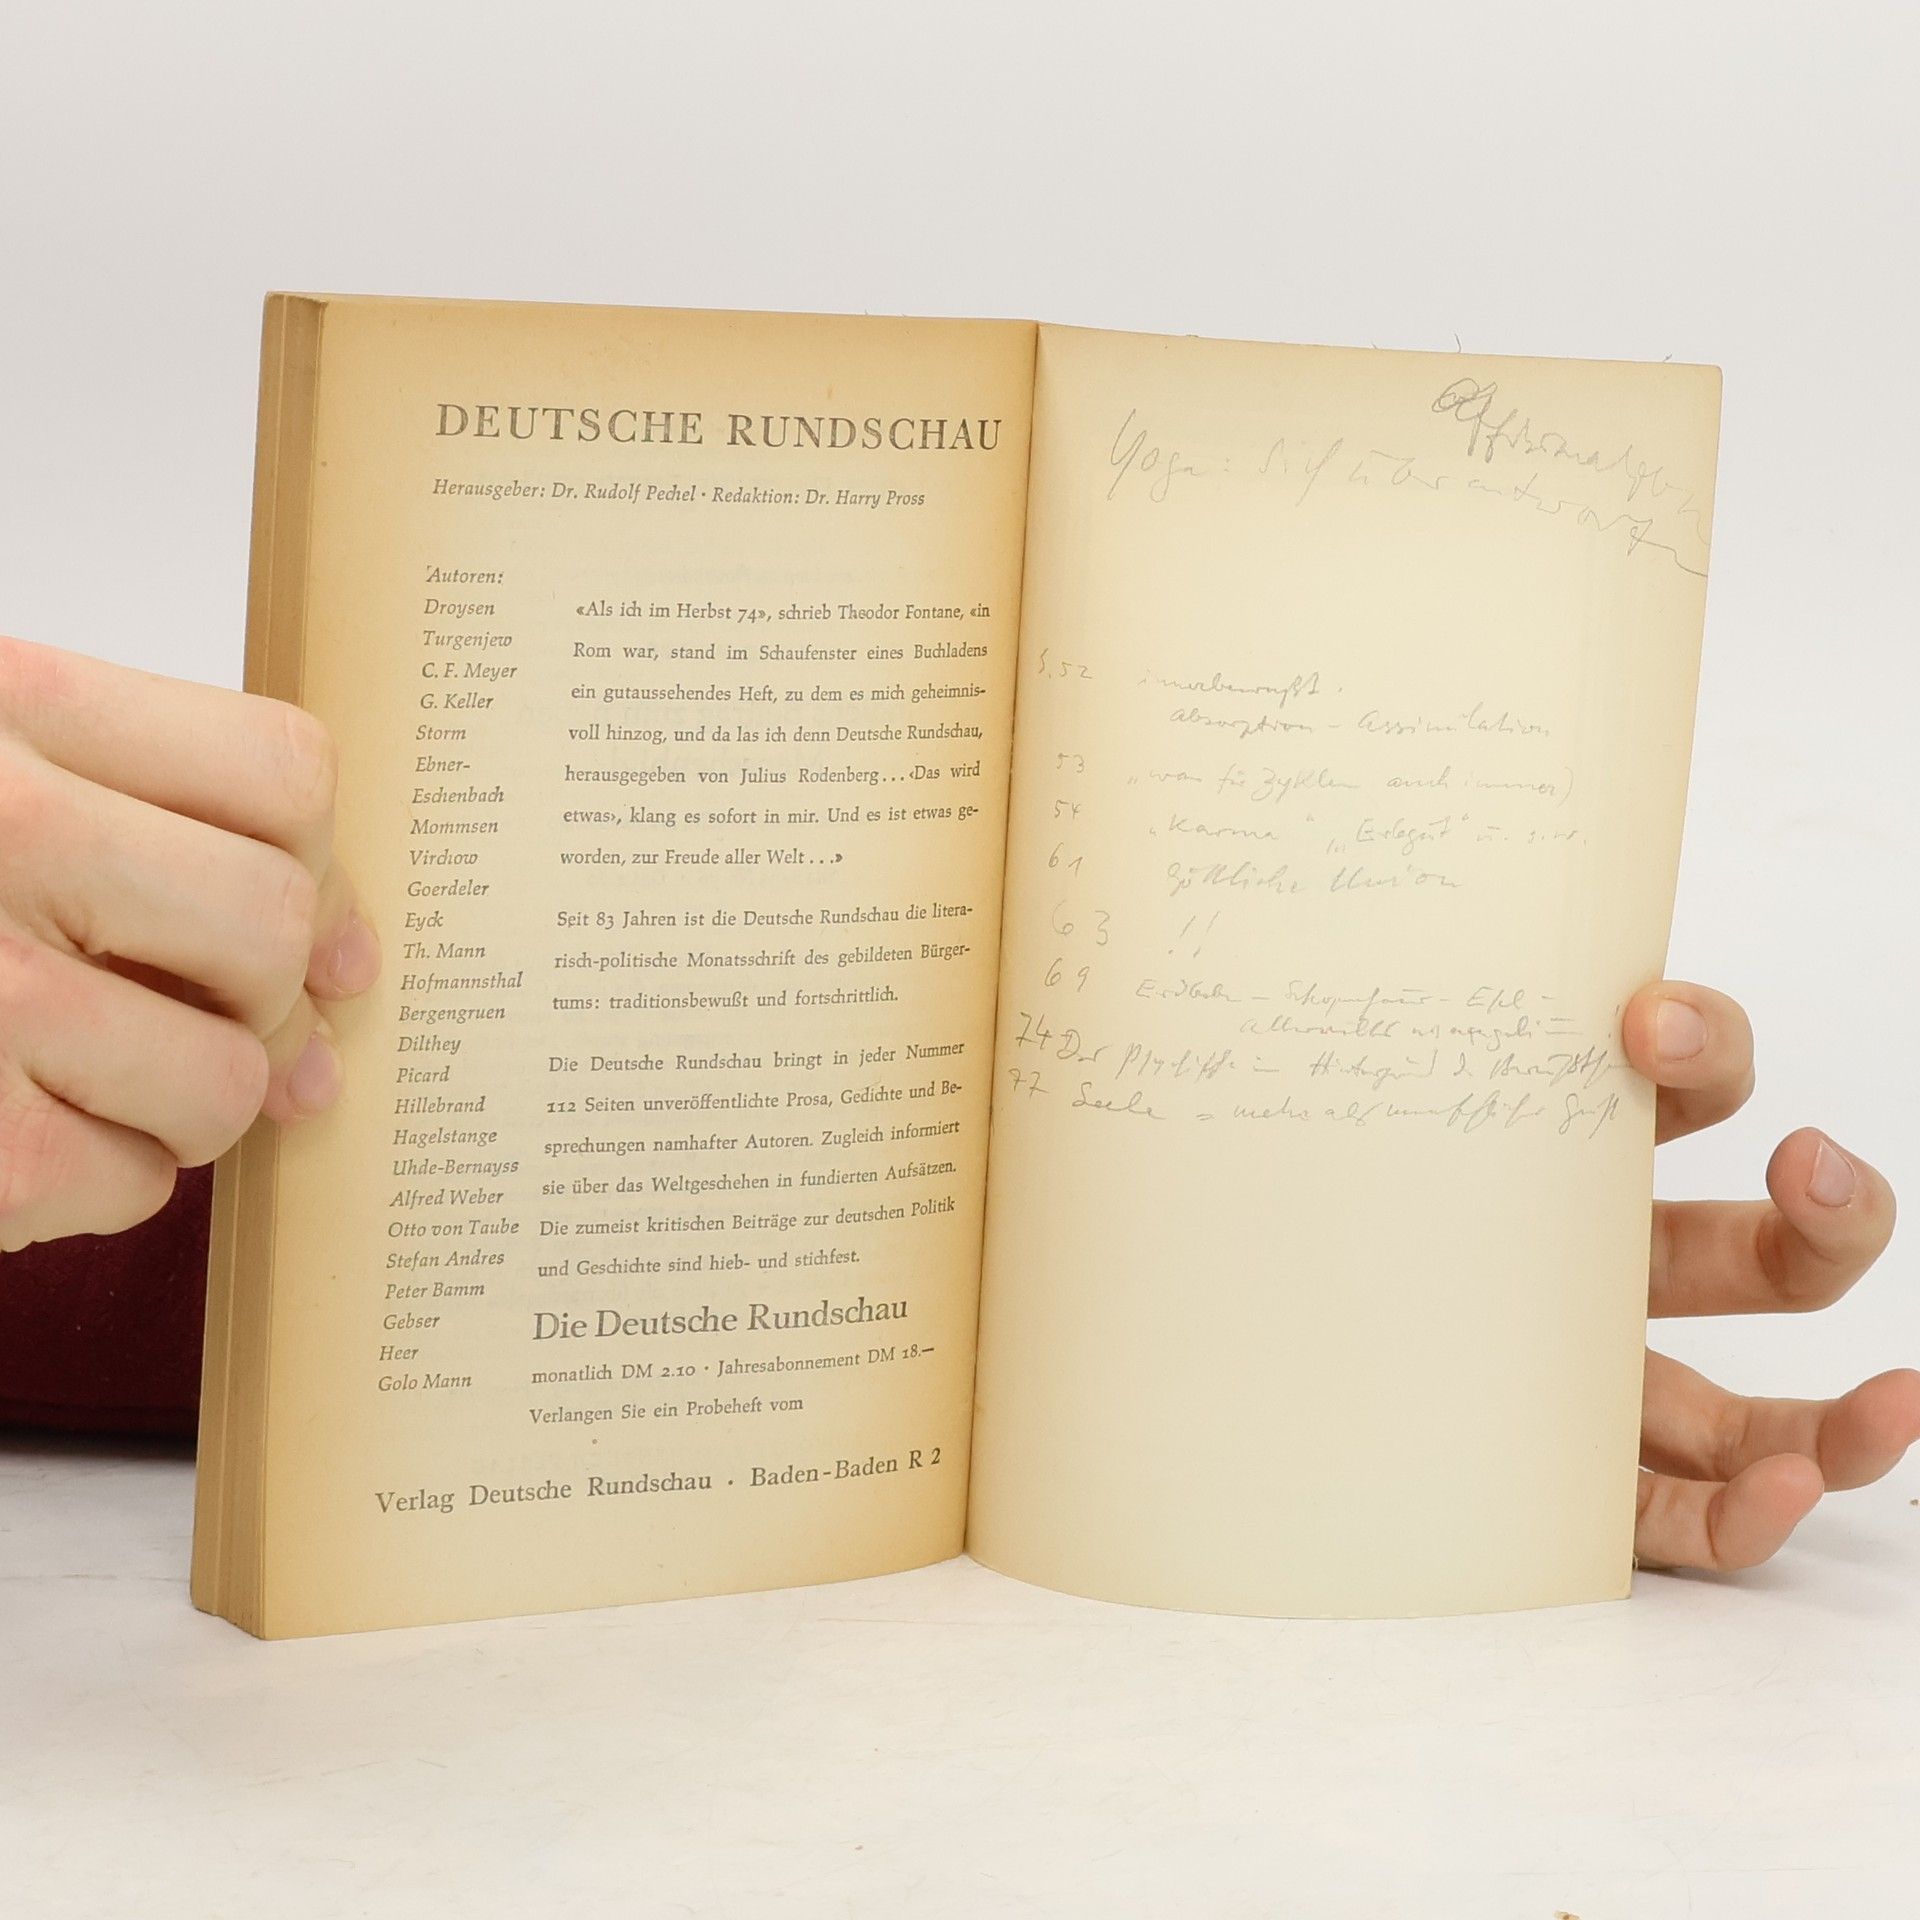 DEUTSCHE RUNDSCHAU
Herausgeber: Dr. Rudolf Pechel · Redaktion: Dr. Harry Pross
Autoren:
Droysen
Turgenjew
C. F. Meyer
G. Keller
Storm
Ebner-
Eschenbach
Mommsen
Virchow
Goerdeler
Eyck
Th. Mann
Hofmannsthal
Bergengruen
Dilthey
Picard
Hillebrand
Hagelstange
Uhde-Bernayss
Alfred Weber
Otto von Taube
Stefan Andres
Peter Bamm
Gebser
Heer
Golo Mann
«Als ich im Herbst 74», schrieb Theodor Fontane, «in
Rom war, stand im Schaufenster eines Buchladens
ein gutaussehendes Heft, zu dem es mich geheimnis-
voll hinzog, und da las ich denn Deutsche Rundschau,
herausgegeben von Julius Rodenberg...‹Das wird
etwas›, klang es sofort in mir. Und es ist etwas ge-
worden, zur Freude aller Welt...»
Seit 83 Jahren ist die Deutsche Rundschau die litera-
risch-politische Monatsschrift des gebildeten Bürger-
tums: traditionsbewußt und fortschrittlich.
Die Deutsche Rundschau bringt in jeder Nummer
112 Seiten unveröffentlichte Prosa, Gedichte und Be-
sprechungen namhafter Autoren. Zugleich informiert
sie über das Weltgeschehen in fundierten Aufsätzen.
Die zumeist kritischen Beiträge zur deutschen Politik
und Geschichte sind hieb- und stichfest.
Die Deutsche Rundschau
monatlich DM 2.10 · Jahresabonnement DM 18.—
Verlangen Sie ein Probeheft vom
Verlag Deutsche Rundschau · Baden-Baden R 2
Yoga: sich überantworten
S. 52 innerbewußt.
Absorption - Assimilation
53 „was für Zyklen auch immer)
54 „Karma" „Erbgut" u. s. w.
61 göttliche Union
63 !!
69
74 Das
77 Seele = mehr als